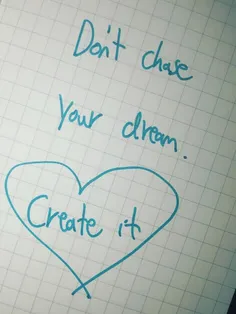 Don't chase
your dream.
Create it